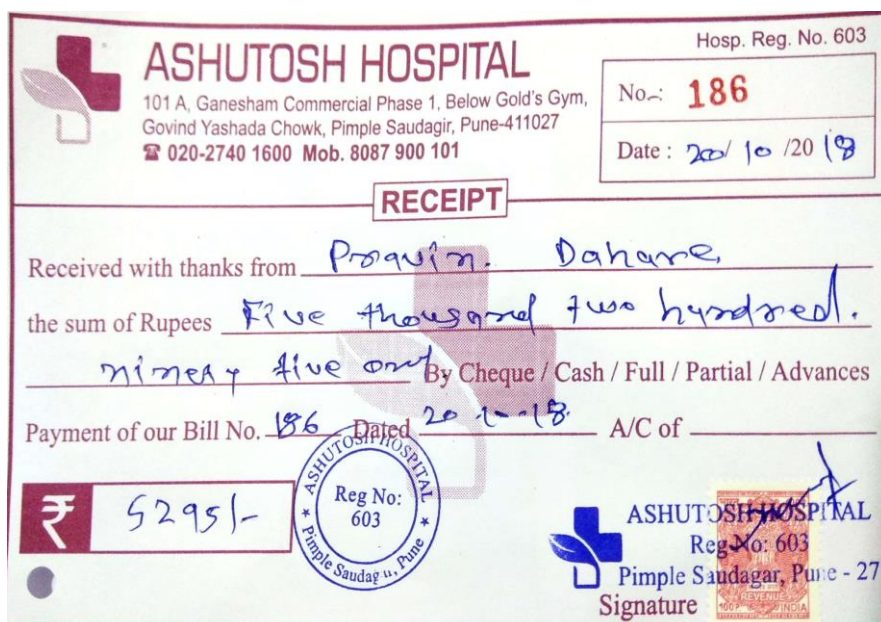 Hosp. Reg. No. 603
ASHUTOSH HOSPITAL
101 A, Ganesham Commercial Phase 1, Below Gold's Gym,
Govind Yashada Chowk, Pimple Saudagir, Pune-411027
☎ 020-2740 1600 Mob. 8087 900 101
No.: 186
Date : 20/ 10 /20 18
RECEIPT
Received with thanks from Pravin. Dahare
the sum of Rupees Five thousand two hundred.
ninety five only By Cheque / Cash / Full / Partial / Advances
Payment of our Bill No. 186 Dated 20 18 A/C of
₹ 5295/-
ASHUTOSH HOSPITAL
Reg No:
603
Pimple Saudagar, Pune
ASHUTOSH HOSPITAL
Reg No: 603
Pimple Saudagar, Pune - 27
Signature
REVENUE
100P INDIA